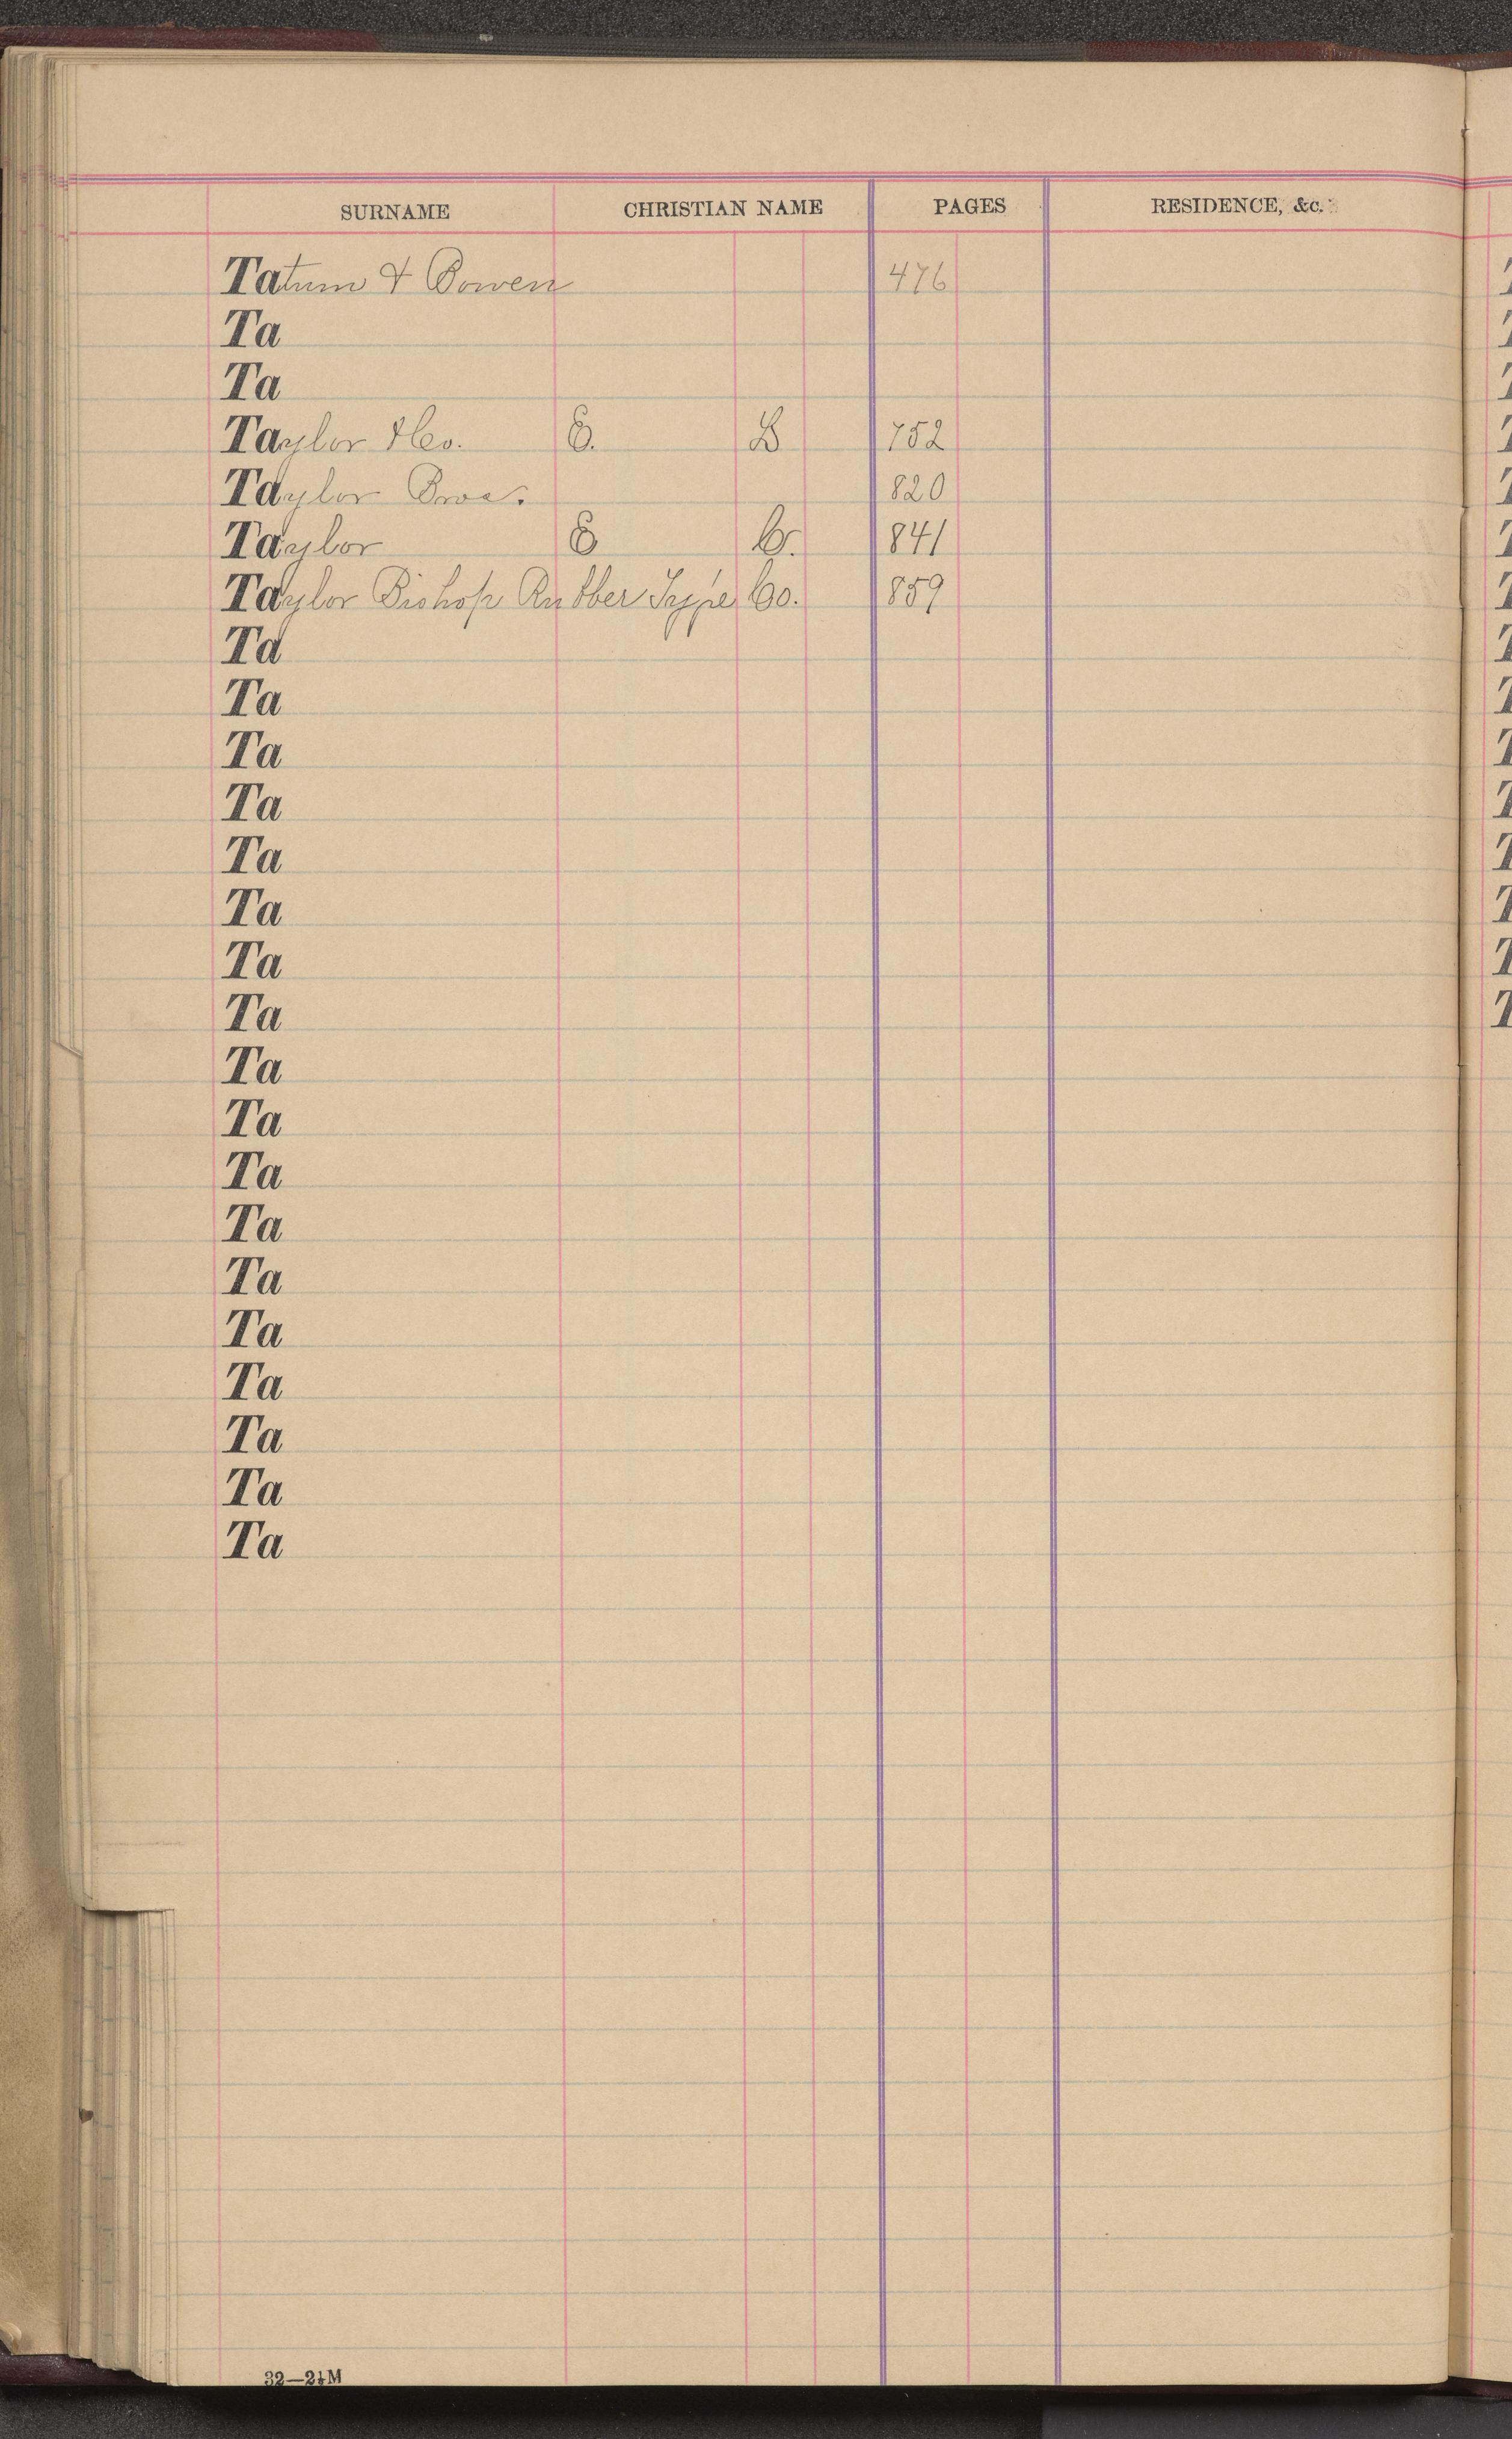 SURNAME CHRISTIAN NAME PAGES RESIDENCE, &c.
Tatum & Bowen 476
Ta
Ta
Taylor & Co. E. D 752
Taylor Bros. 820
Taylor E C. 841
Taylor Bishop Rubber Type Co. 859
Ta
Ta
Ta
Ta
Ta
Ta
Ta
Ta
Ta
Ta
Ta
Ta
Ta
Ta
Ta
Ta
Ta
Ta
32—2½M